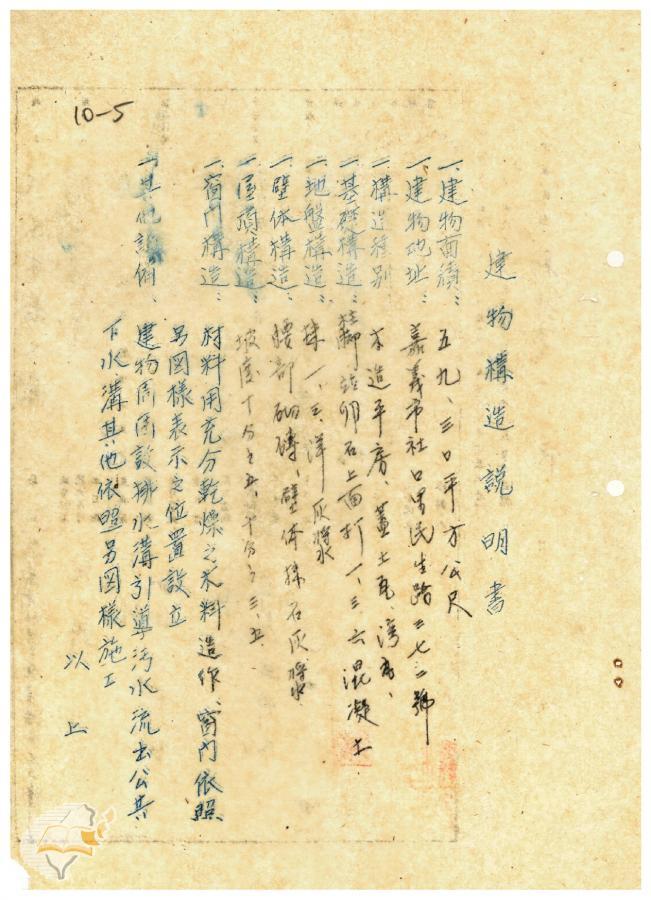 10-5
建物構造說明書
一、建物面積：五九、三〇平方公尺
一、建物地址：嘉義市社口里民生路二七二號
一、構造種別 木造平房、蓋土瓦、灣房、
一、基礎構造：柱腳站卵石上面打一、三、六混凝土
一、地盤構造：抹一、三、洋灰漿
一、壁体構造：腰部砌磚、壁体抹石灰漿
一、屋頂構造：坡度十分之五、十分之三、五
一、窗門構造：材料用充分乾燥之木料造作、窗門依照
另図樣表示之位置設立
一、其他設備、建物周囲設排水溝引導汚水流出公共
下水溝其他依照另図樣施工
以上